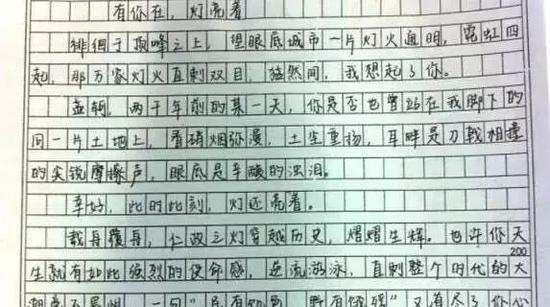 有你在，灯亮着
徘徊于顶峰之上，望眼底城市一片灯火通明，霓虹四
起，那万家灯火直刺双目，猛然间，我想起了你。
孟轲，两千年前的某一天，你是否也曾站在我脚下的
同一片土地上，看硝烟弥漫，土尘重扬，耳畔是刀戟相撞
的尖锐摩擦声，眼底是辛酸的浊泪。
幸好，此时此刻，灯还亮着。
载舟覆舟，仁政之灯穿越历史，熠熠生辉。也许你天
200
生就有如此强烈的使命感，逆流游泳，直刺整个时代的大
一句"民有饥色，野有饿殍"又有尽了你心